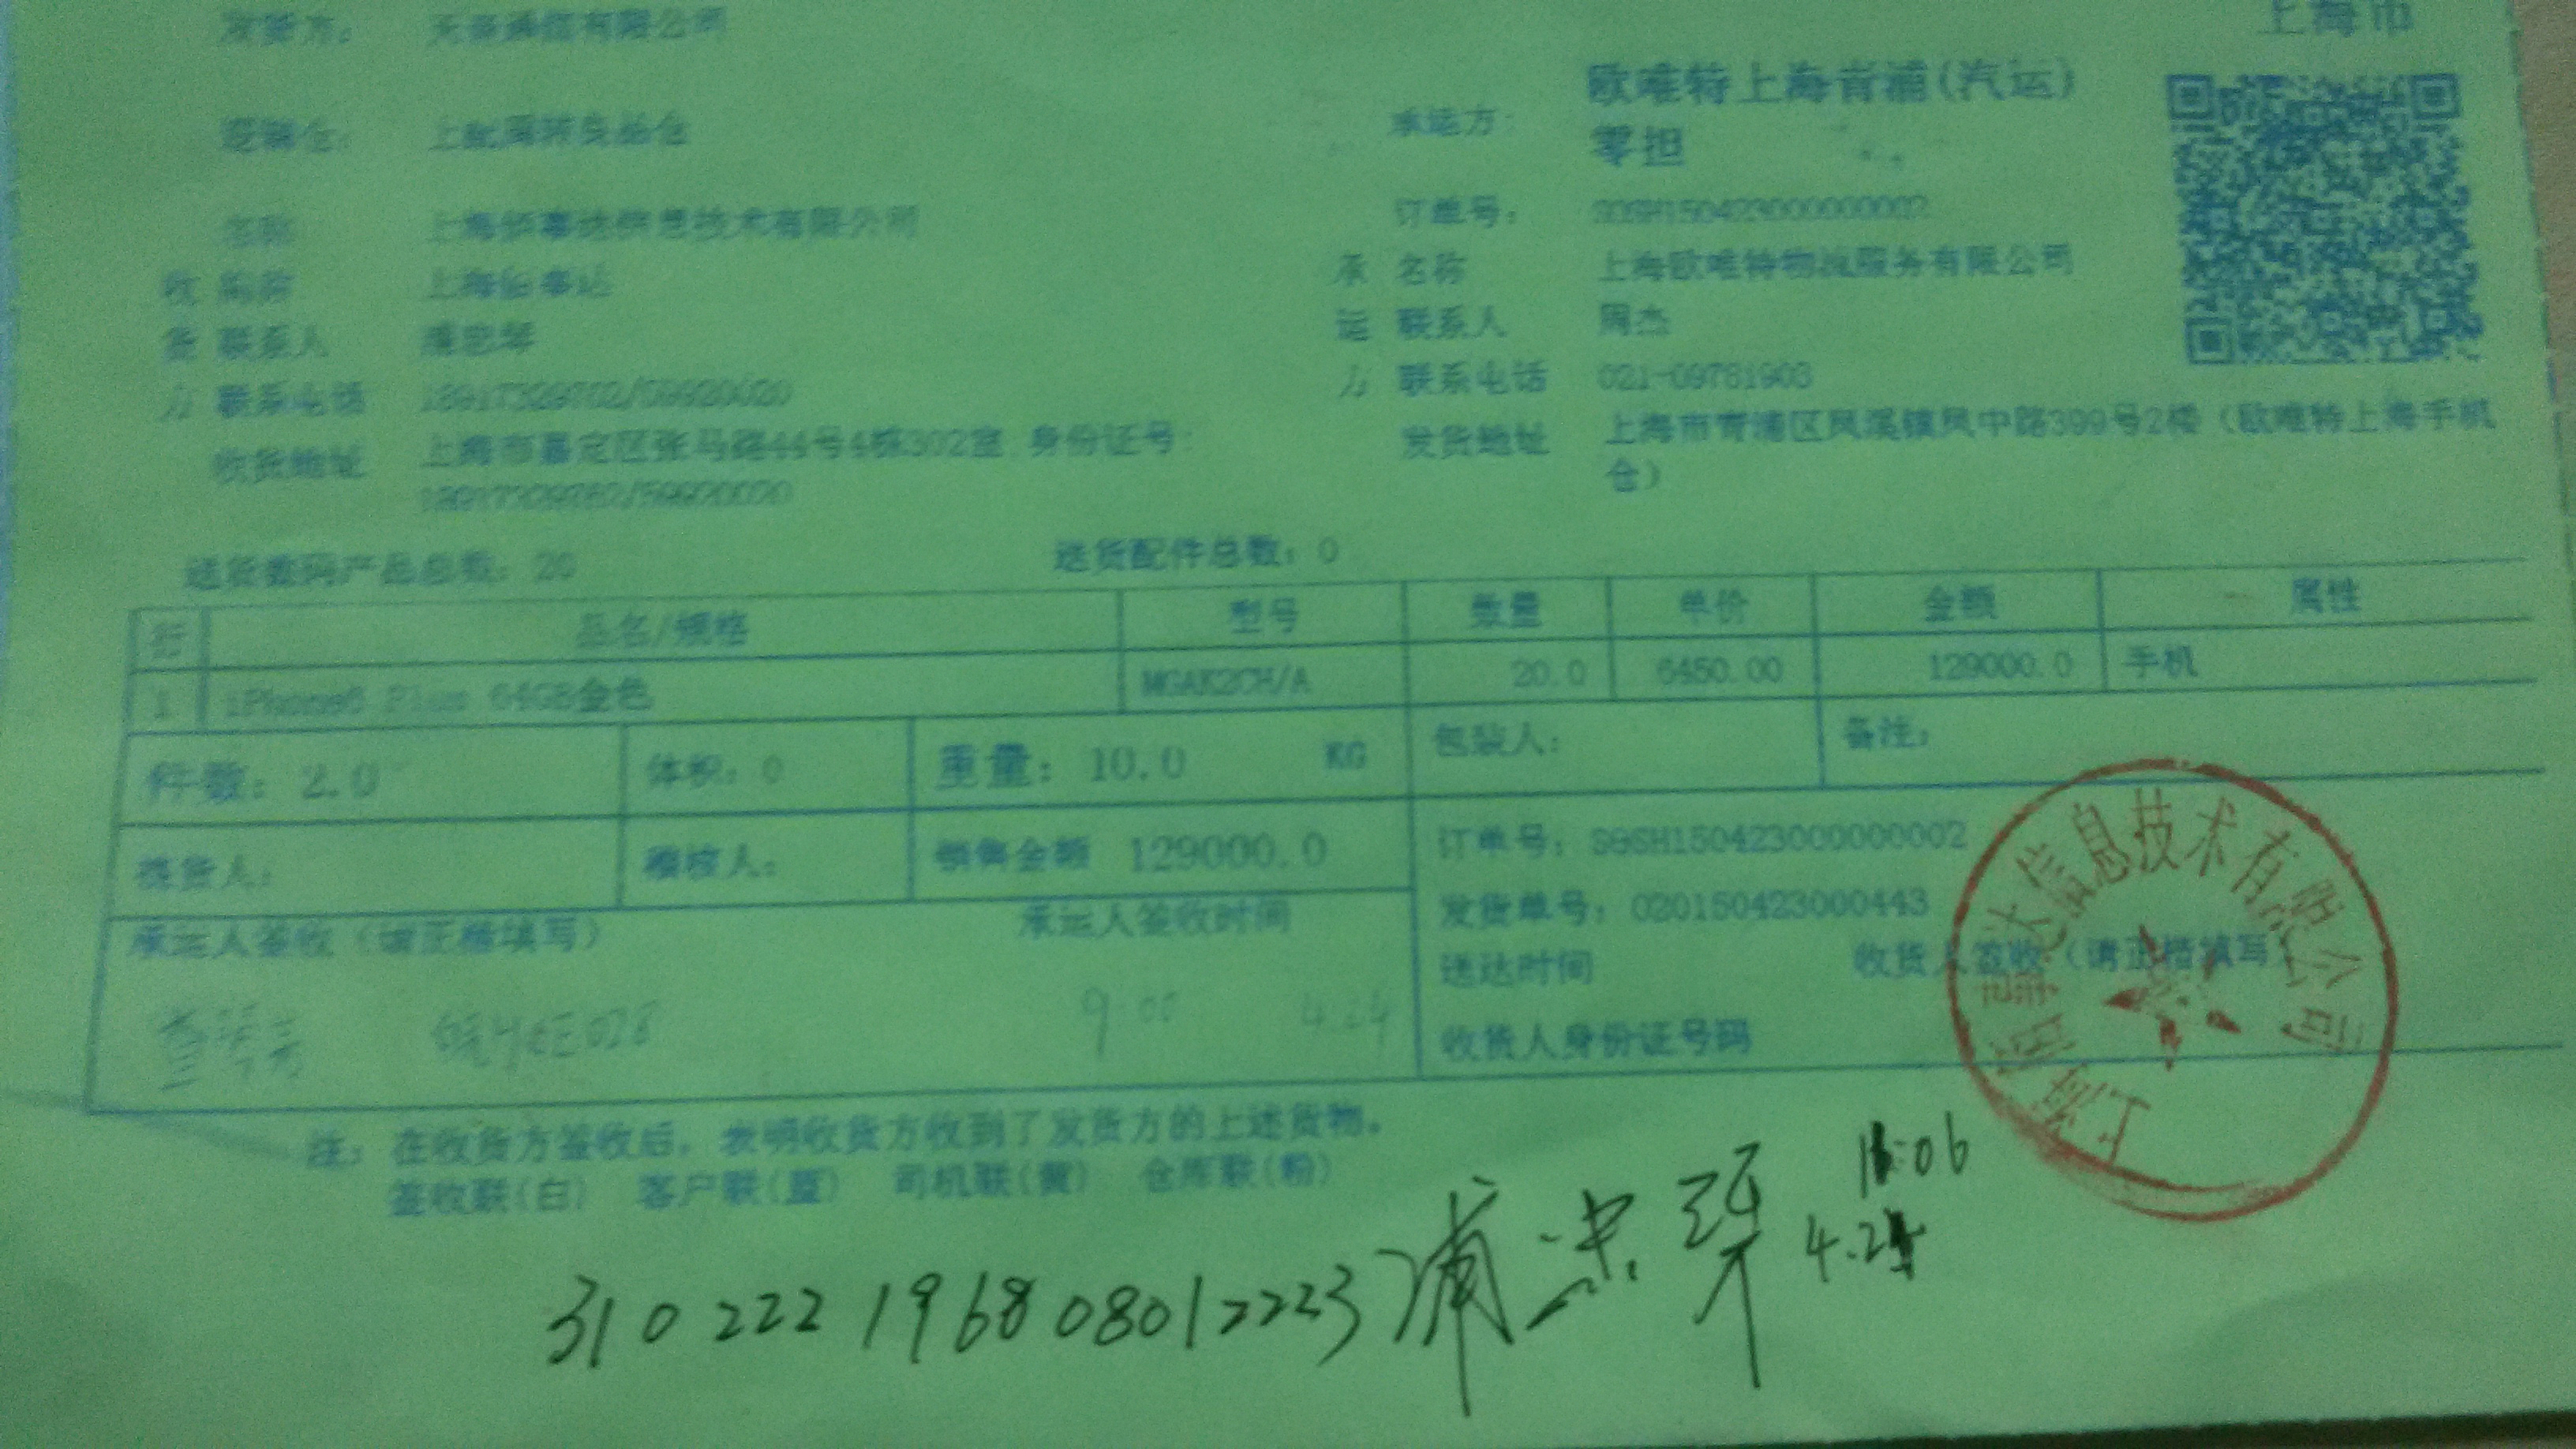 上海市
发货方： 天音通信有限公司
承运方： 欧唯特上海青浦(汽运)
零担
逻辑仓：
订单号： SGSH150423000000002
名称 上海佰事达信息技术有限公司
承 名称 上海欧唯特物流服务有限公司
收 简称 上海佰事达
运 联系人 周杰
货 联系人 浦忠琴
方 联系电话
方 联系电话
发货地址 上海市青浦区凤溪镇凤中路399号2楼（欧唯特上海手机
仓）
收货地址 上海市嘉定区张马路44号4栋302室 身份证号:
送货数码产品总数：20 送货配件总数：0
行 品名/规格 型号 数量 单价 金额 属性
1 iPhone6 Plus 64GB金色 MGAK2CH/A 20.0 6450.00 129000.0 手机
件数：2.0 体积：0 重量：10.0 KG 包装人： 备注：
拣货人： 稽核人： 销售金额 129000.0 订单号：SGSH150423000000002
发货单号：020150423000443
承运人签收（请正楷填写） 承运人签收时间
送达时间 收货人签收（请正楷填写）
9:00 4.24
收货人身份证号码
上海佰事达信息技术有限公司
注：在收货方签收后，表明收货方收到了发货方的上述货物。
签收联(白) 客户联(蓝) 司机联(黄) 仓库联(粉)
310222196808012223 浦忠琴 11:06
4.24